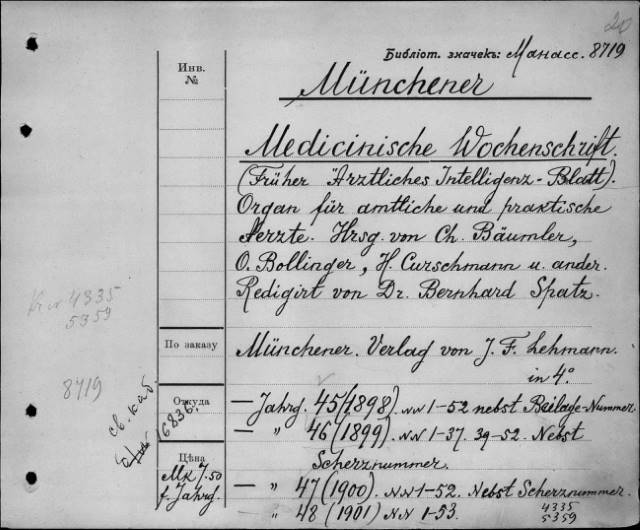 20
Библіот. значекъ: Манасс. 8719
Инв.
№
Münchener
Medicinische Wochenschrift.
(Früher Ärztliches Intelligenz-Blatt).
Organ für amtliche und praktische
Aerzte. Hrsg. von Ch. Bäumler,
O. Bollinger, H. Curschmann u. ander.
Redigirt von Dr. Bernhard Spatz.
4335
5359
По заказу
Münchener. Verlag von J. F. Lehmann.
in 4°.
8719
св. каб.
16836.
Откуда
— Jahrg. 45 (1898). NN 1-52 nebst Beilage-Nummer.
— " 46 (1899). NN 1-37. 39-52. Nebst
Scherznummer.
Цѣна
Mk 7.50
f. Jahrg.
— " 47 (1900). NN 1-52. Nebst Scherznummer.
" 48 (1901) NN 1-53. 4335
5359